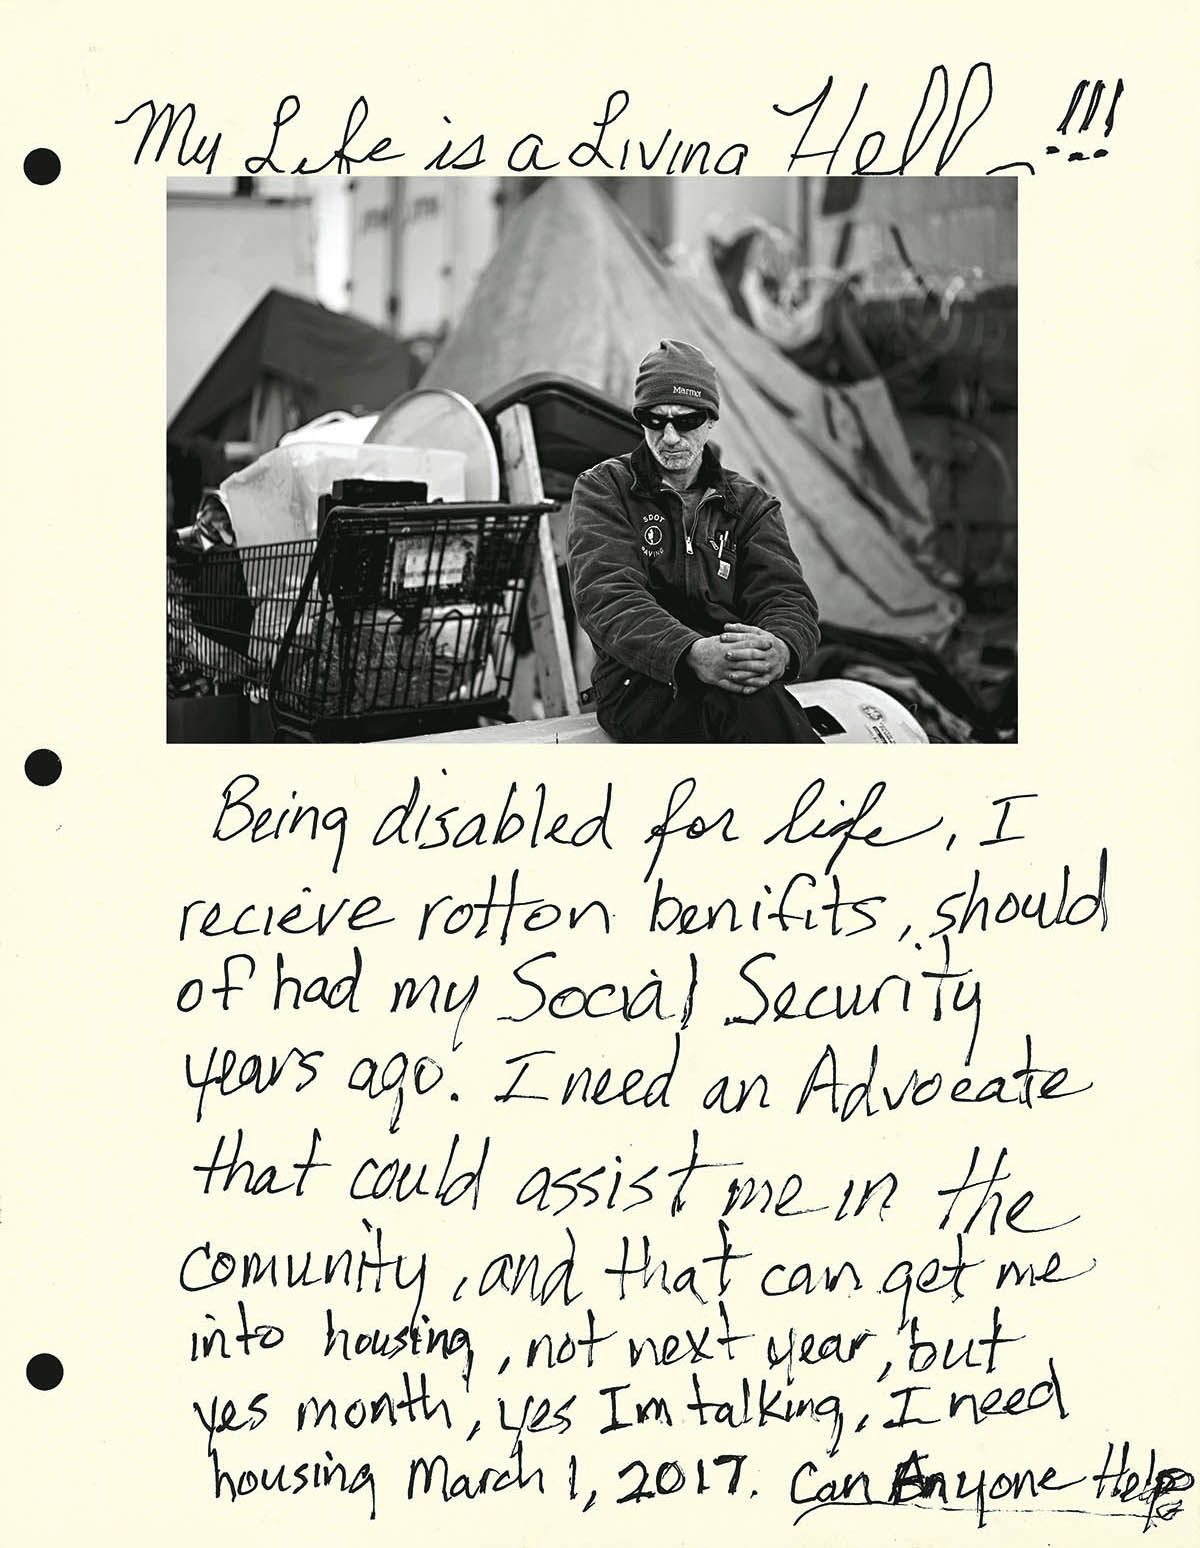 My Life is a Living Hell !!!
Marmot
SDOT
PAVING
Being disabled for life, I
recieve rotton benifits, should
of had my Social Security
years ago. I need an Advocate
that could assist me in the
comunity, and that can get me
into housing, not next year, but
yes month, yes Im talking, I need
housing March 1, 2017. Can Anyone Help